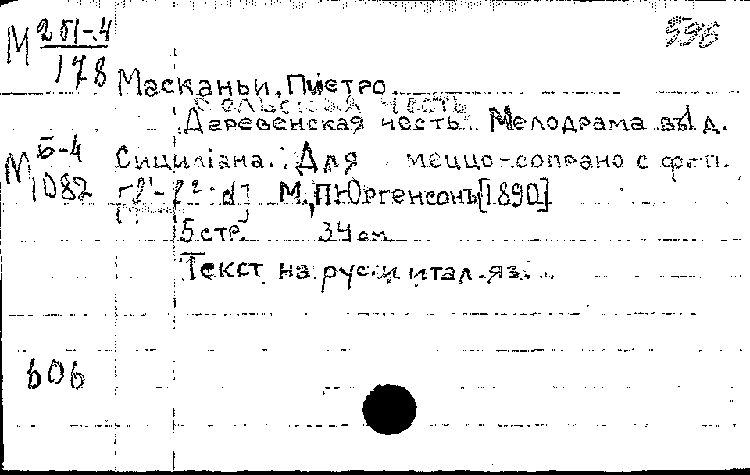 596
М 251-4
178
Масканьи, Пиетро.
Сельская честь
Деревенская честь. Мелодрама в 1 д.
М Б-4
1082
Сицилiана. Для меццо-сопрано с ф-п.
М., П. Юргенсонъ [1890]
5 стр. 34 см
Текст на рус. и итал. яз.
606